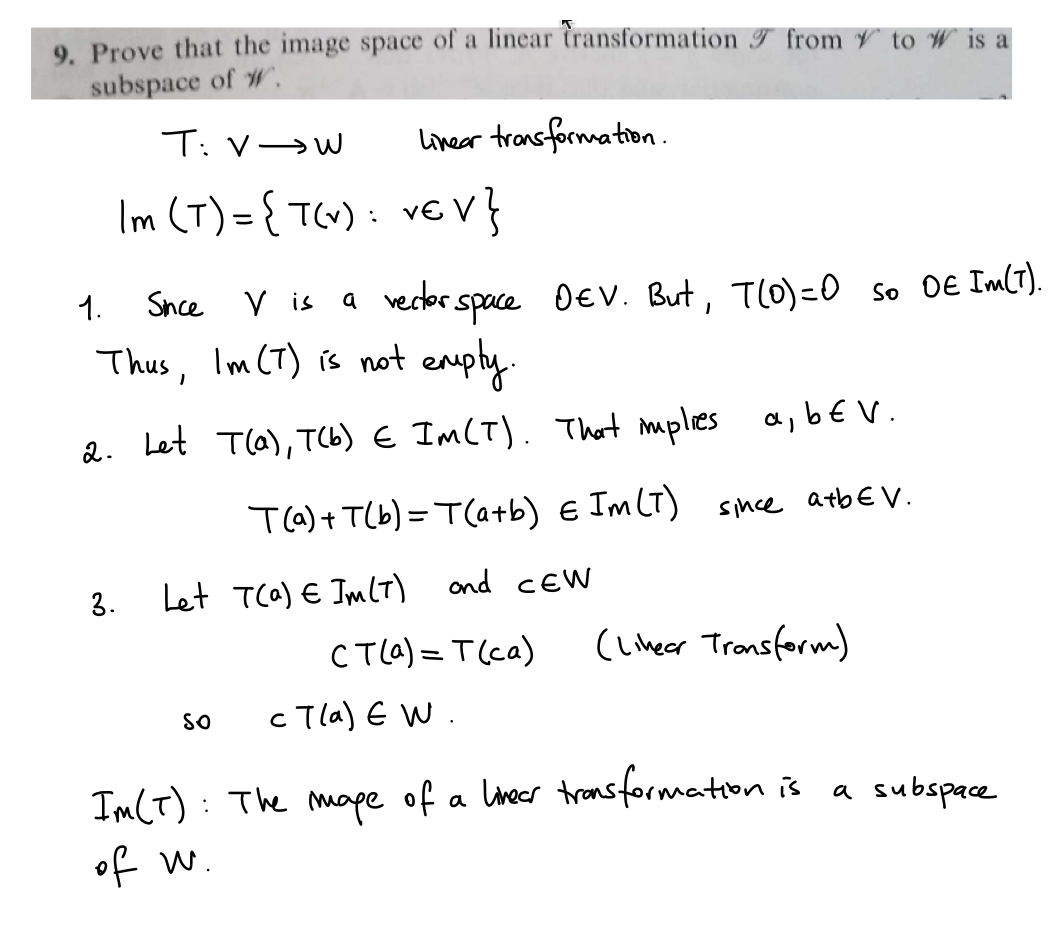 9. Prove that the image space of a linear transformation 𝒯 from 𝒱 to 𝒲 is a
subspace of 𝒲.
T: V → W linear transformation.
Im (T) = { T(v) : v ∈ V }
1. Snce V is a vector space 0 ∈ V. But, T(0)=0 so 0 ∈ Im(T).
Thus, Im (T) is not empty.
2. Let T(a), T(b) ∈ Im(T). That implies a, b ∈ V.
T(a) + T(b) = T(a+b) ∈ Im(T) since a+b ∈ V.
3. Let T(a) ∈ Im(T) and c ∈ W
c T(a) = T(ca) (Linear Transform)
so c T(a) ∈ W .
Im(T) : The image of a linear transformation is a subspace
of W.